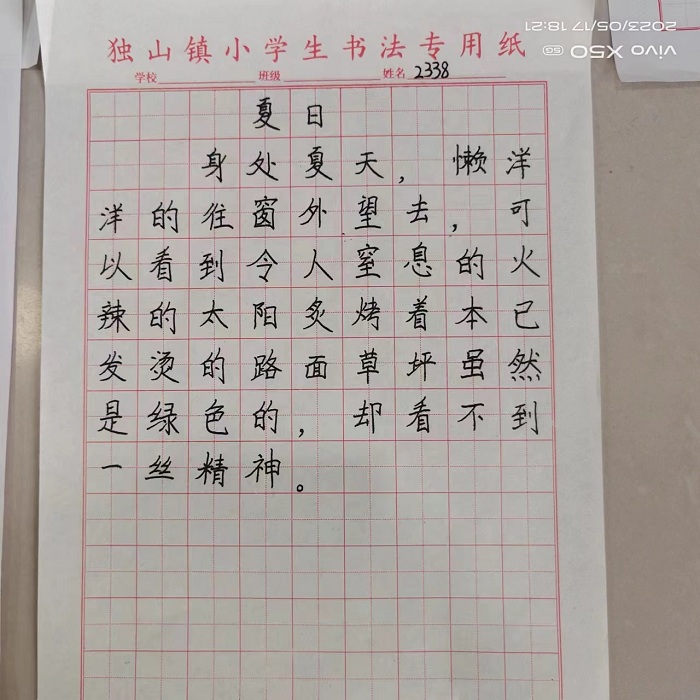 独山镇小学生书法专用纸
学校 班级 姓名 2338
夏日
身处夏天，懒洋
洋的往窗外望去，可
以看到令人窒息的火
辣的太阳炙烤着本已
发烫的路面草坪虽然
是绿色的，却看不到
一丝精神。
vivo X50 5G 2023/05/17 18:21